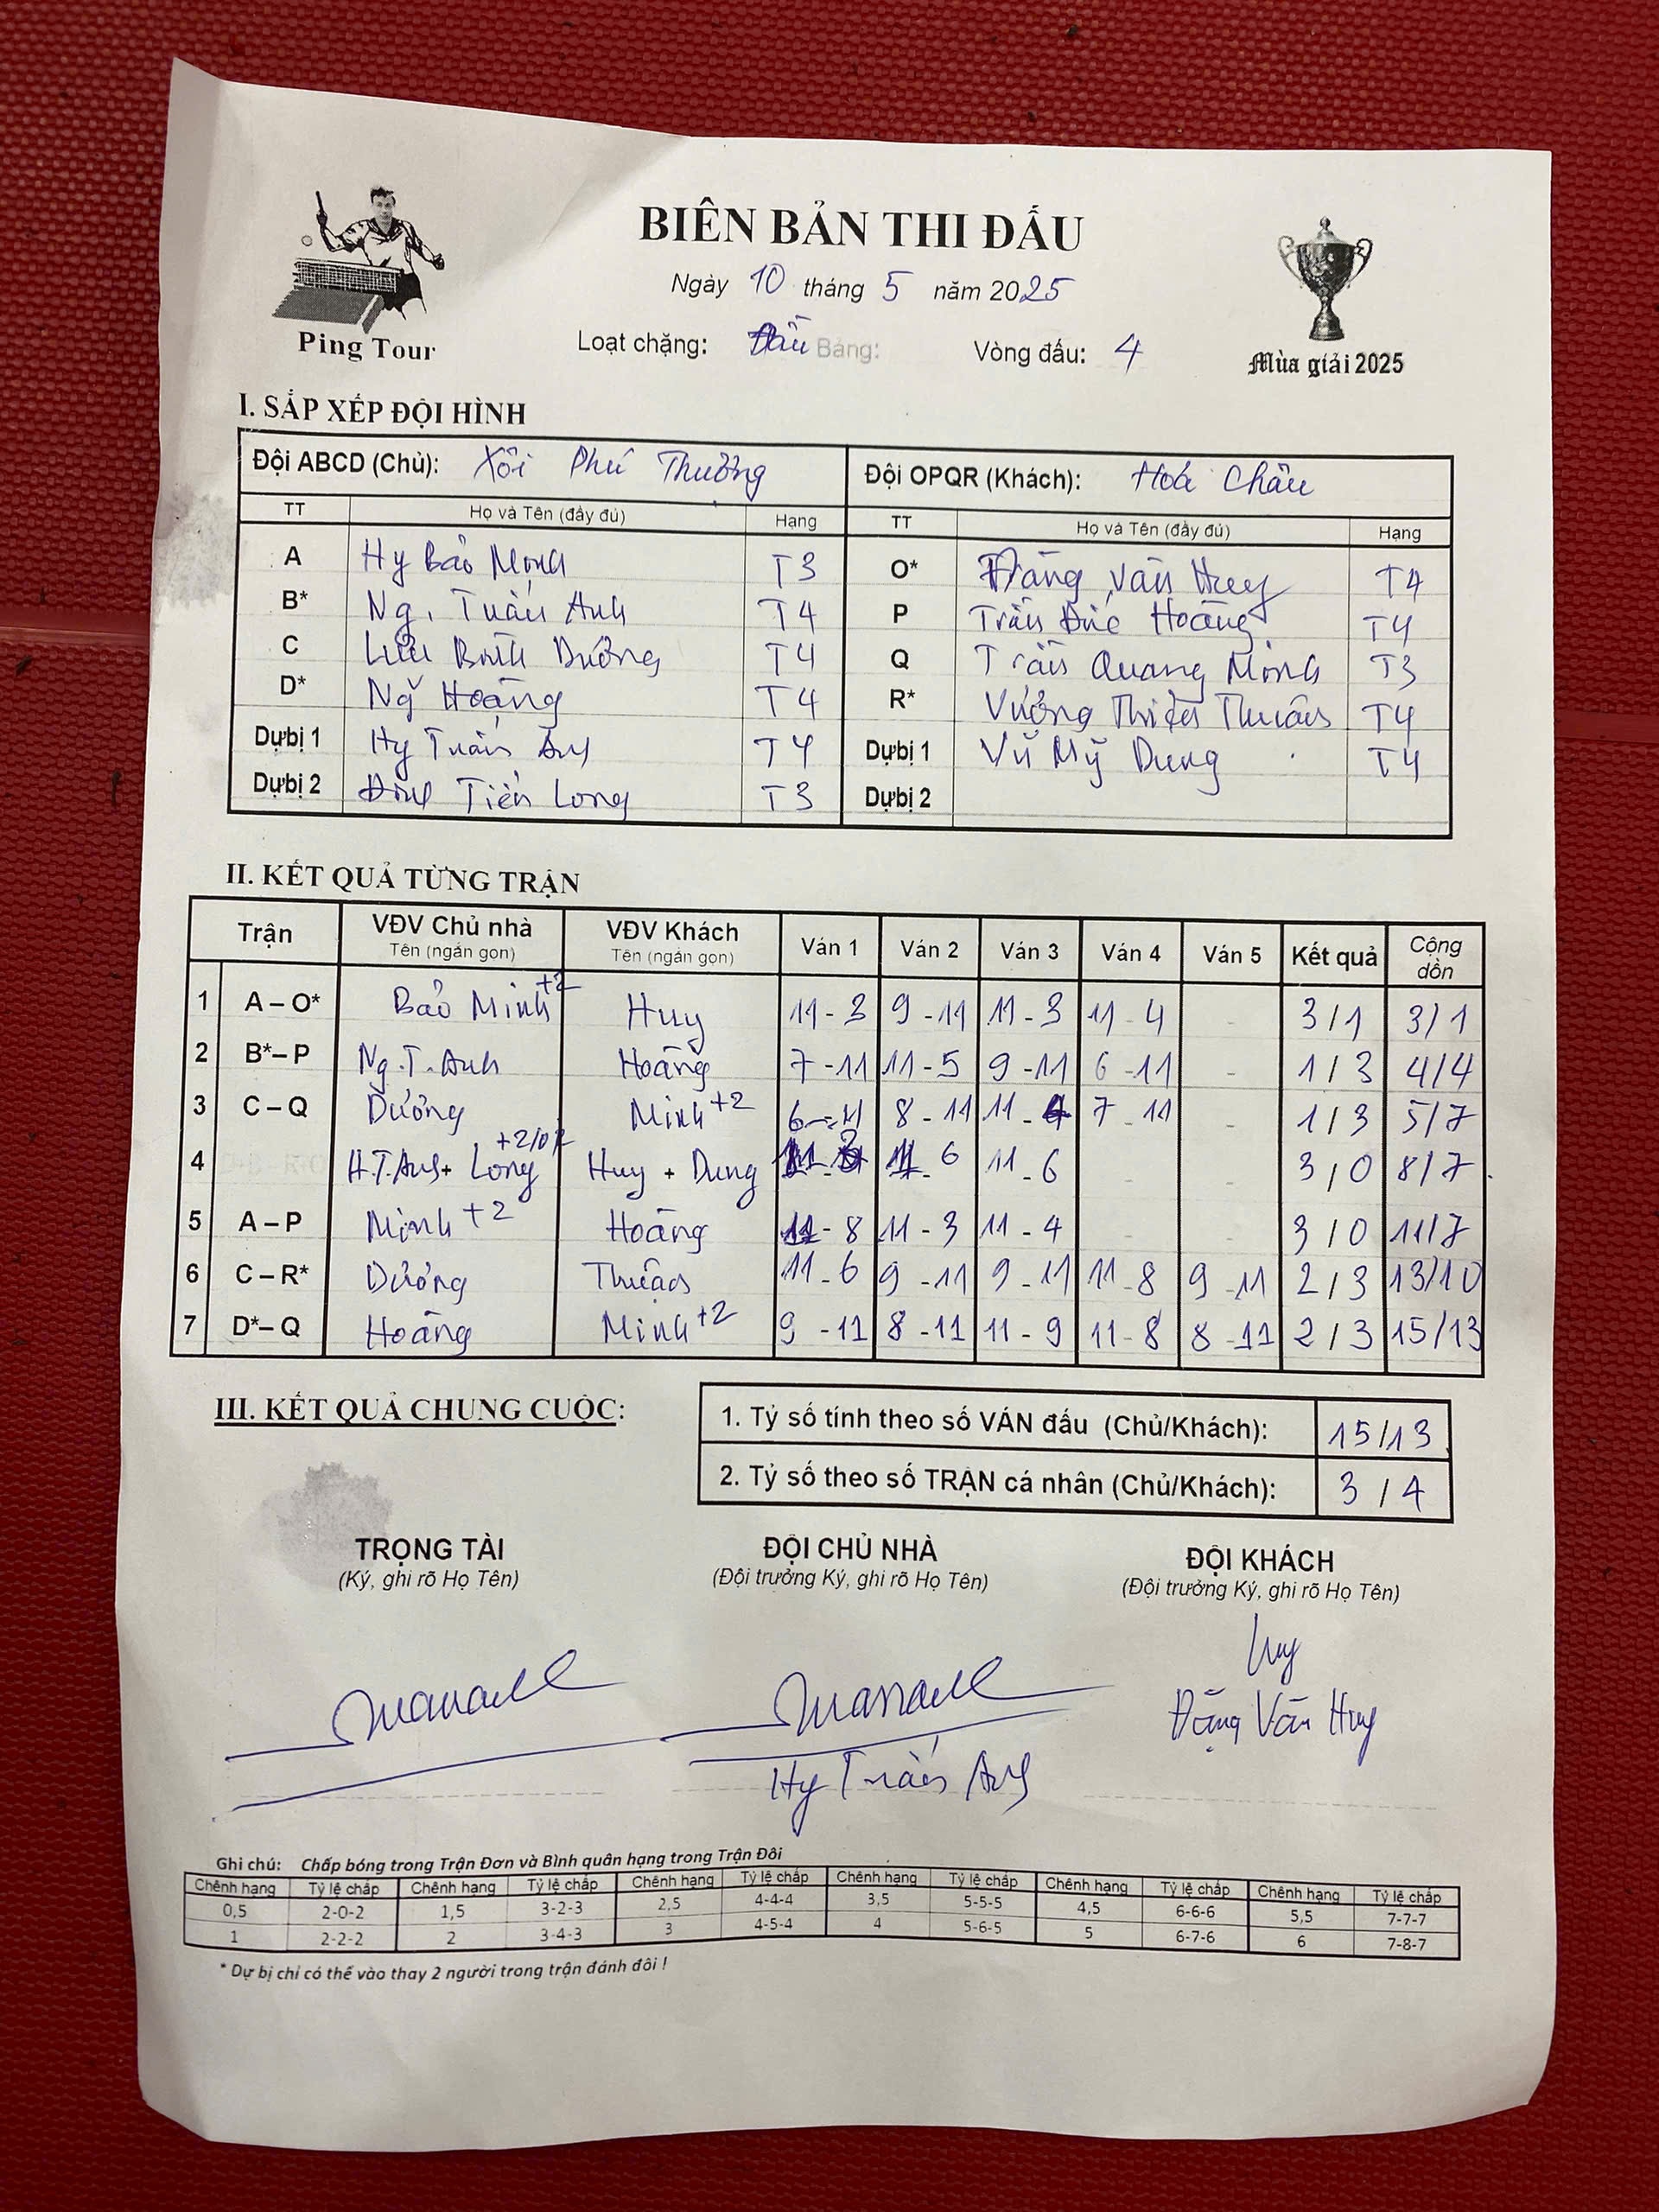 BIÊN BẢN THI ĐẤU
Ngày 10 tháng 5 năm 2025
Loạt chặng: Đầu Bảng: Vòng đấu: 4
Ping Tour
Mùa giải 2025
I. SẮP XẾP ĐỘI HÌNH
Đội ABCD (Chủ): Xôi Phú Thường Đội OPQR (Khách): Hoá Châu
TT Họ và Tên (đầy đủ) Hạng TT Họ và Tên (đầy đủ) Hạng
A Hg Bảo Minh T3 O* Đặng Văn Huy T4
B* Ng. Tuấn Anh T4 P Trần Đức Hoàng T4
C Lưu Bình Dương T4 Q Trần Quang Minh T3
D* Ng Hoàng T4 R* Vương Thiện Thuân T4
Dự bị 1 Hg Tuấn Anh T4 Dự bị 1 Vũ Mỹ Dung T4
Dự bị 2 Tiến Long T3 Dự bị 2
II. KẾT QUẢ TỪNG TRẬN
Trận VĐV Chủ nhà Tên (ngắn gọn) VĐV Khách Tên (ngắn gọn) Ván 1 Ván 2 Ván 3 Ván 4 Ván 5 Kết quả Cộng dồn
1 A – O* Bảo Minh +2 Huy 11 - 3 9 - 11 11 - 3 11 - 4 - 3 / 1 3 / 1
2 B* – P Ng. T. Anh Hoàng 7 - 11 11 - 5 9 - 11 6 - 11 - 1 / 3 4/4
3 C – Q Dương Minh +2 6 - 11 8 - 11 11 - 7 - 11 1 / 3 5/7
4 H.T.Anh + Long +2/0/2 Huy + Dung 11 - 3 11 - 6 11 - 6 - - 3 / 0 8/7
5 A – P Minh +2 Hoàng 11 - 8 11 - 3 11 - 4 - - 3 / 0 11/7
6 C – R* Dương Thuân 11 - 6 9 - 11 9 - 11 11 - 8 9 - 11 2 / 3 13/10
7 D* – Q Hoàng Minh +2 9 - 11 8 - 11 11 - 9 11 - 8 8 - 11 2 / 3 15/13
III. KẾT QUẢ CHUNG CUỘC:
1. Tỷ số tính theo số VÁN đấu (Chủ/Khách): 15/13
2. Tỷ số theo số TRẬN cá nhân (Chủ/Khách): 3 / 4
TRỌNG TÀI ĐỘI CHỦ NHÀ ĐỘI KHÁCH
(Ký, ghi rõ Họ Tên) (Đội trưởng Ký, ghi rõ Họ Tên) (Đội trưởng Ký, ghi rõ Họ Tên)
Huy
Đặng Văn Huy
Hg Tuấn Anh
Ghi chú: Chấp bóng trong Trận Đơn và Bình quân hạng trong Trận Đôi
Chênh hạng Tỷ lệ chấp Chênh hạng Tỷ lệ chấp Chênh hạng Tỷ lệ chấp Chênh hạng Tỷ lệ chấp Chênh hạng Tỷ lệ chấp Chênh hạng Tỷ lệ chấp
0,5 2-0-2 1,5 3-2-3 2,5 4-4-4 3,5 5-5-5 4,5 6-6-6 5,5 7-7-7
1 2-2-2 2 3-4-3 3 4-5-4 4 5-6-5 5 6-7-6 6 7-8-7
* Dự bị chỉ có thể vào thay 2 người trong trận đánh đôi !